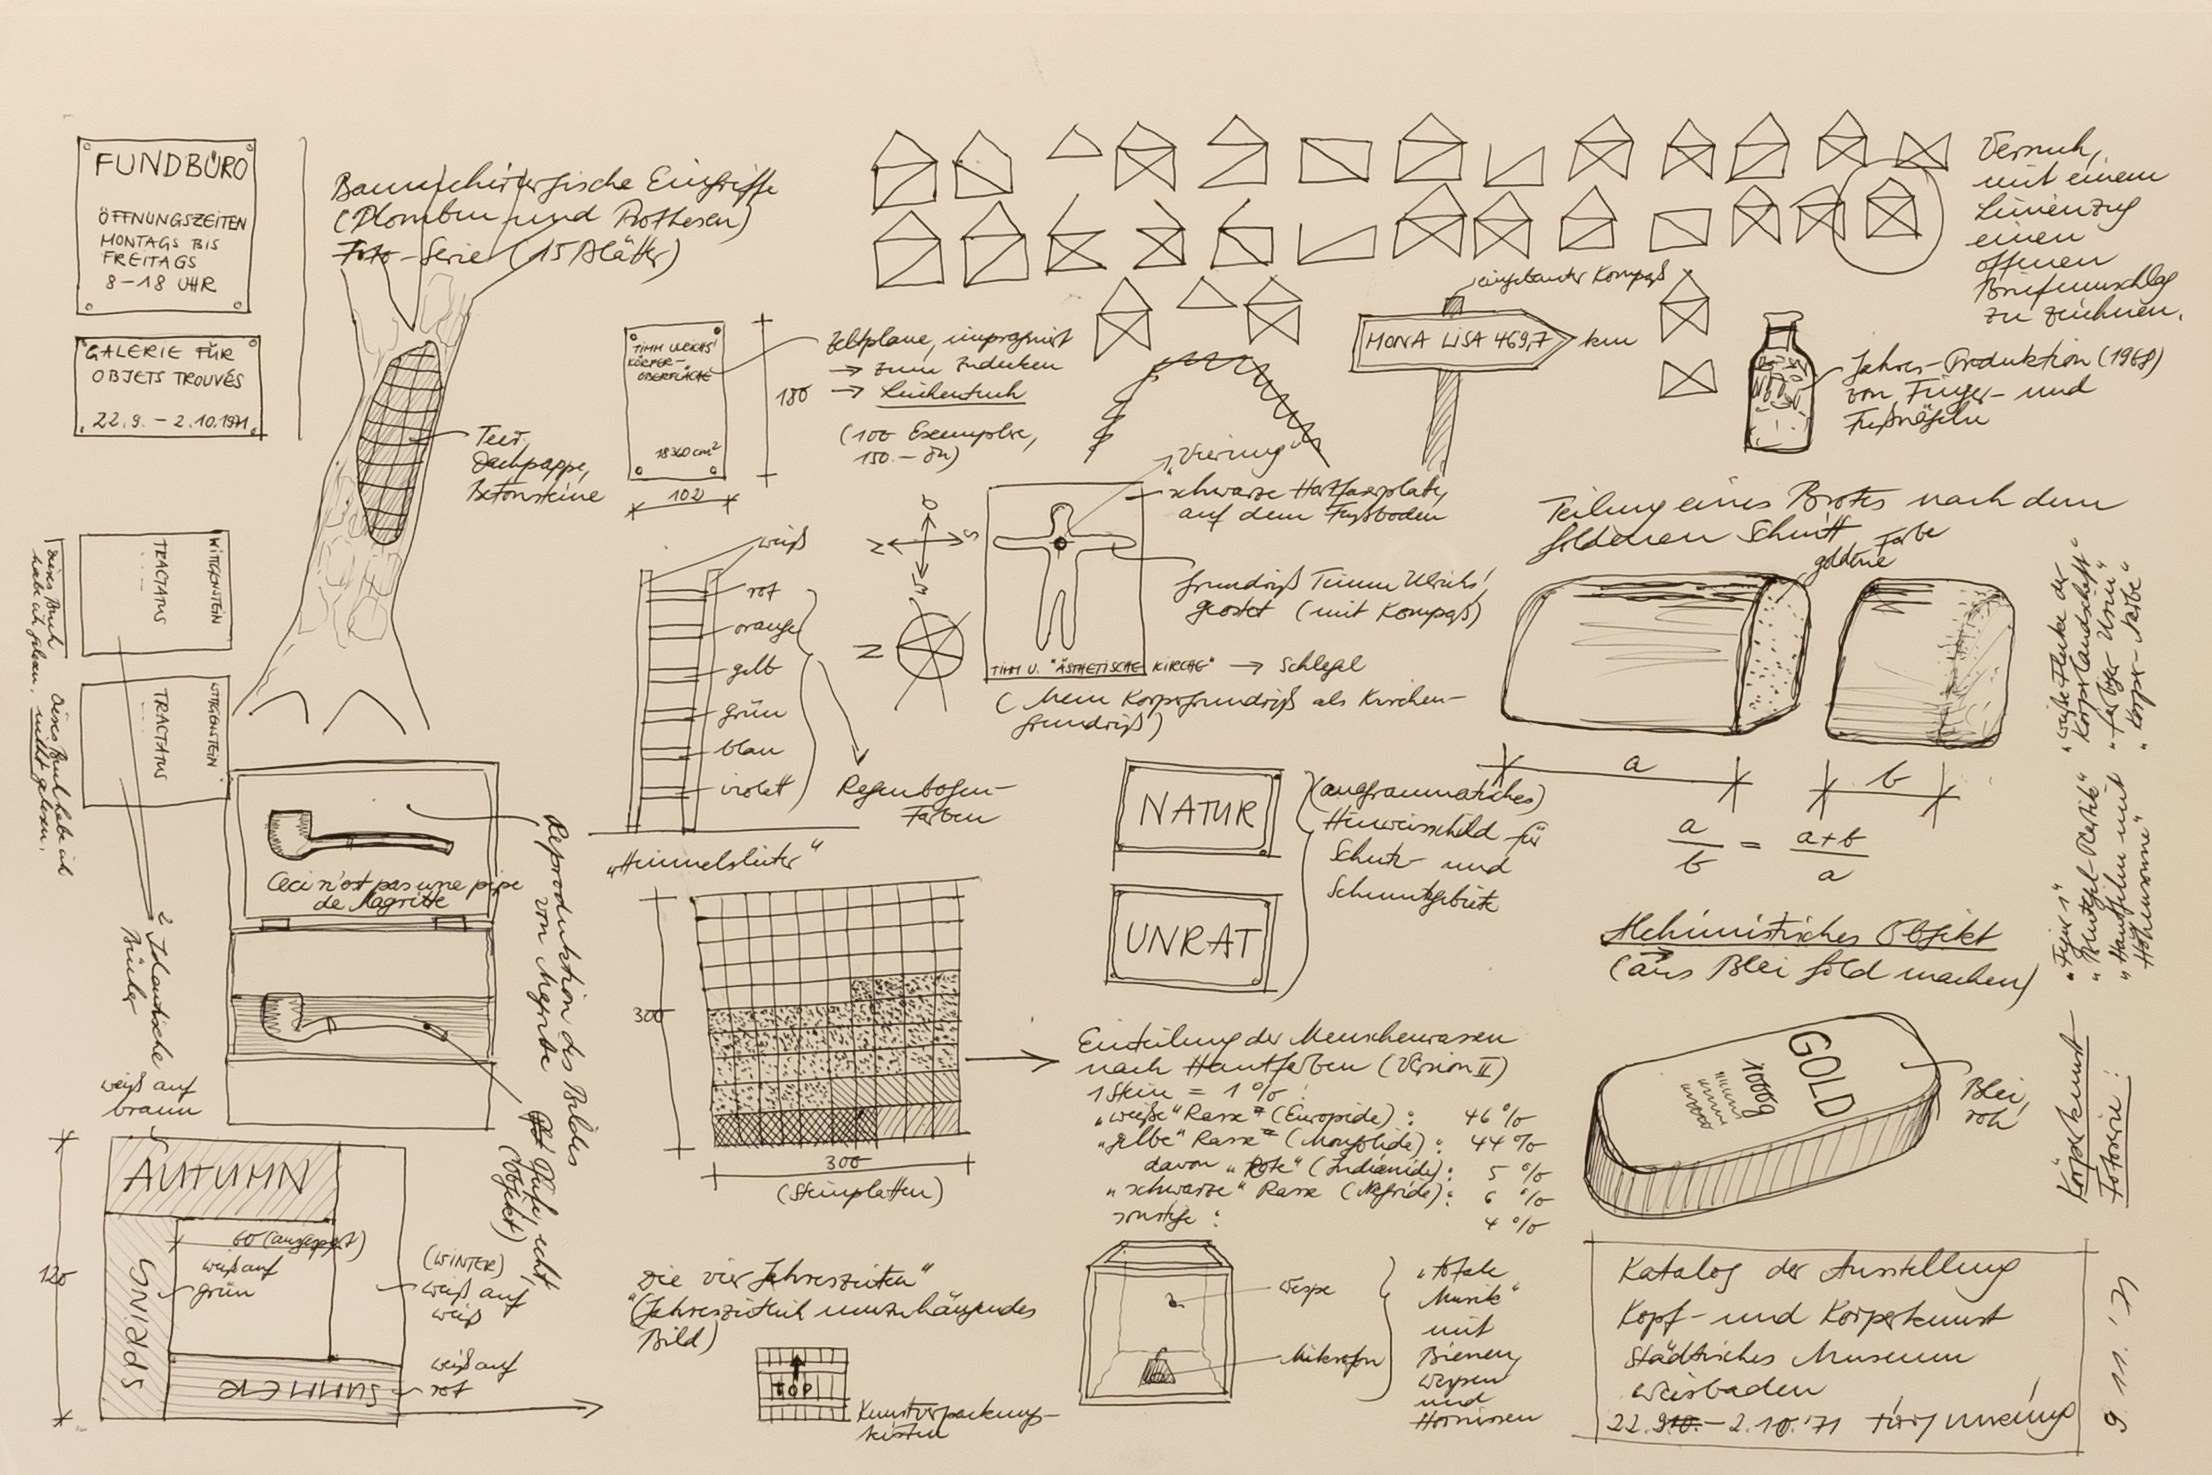 FUNDBÜRO
ÖFFNUNGSZEITEN
MONTAGS BIS
FREITAGS
8–18 UHR
GALERIE FÜR
OBJETS TROUVÉS
22.9. – 2.10.1971
Baumchirurgische Eingriffe
(Plomben und Prothesen)
Foto-Serie (15 Blätter)
Teer,
Dachpappe,
Betonsteine
TIMM ULRICHS'
KÖRPER-
OBERFLÄCHE
18360 cm²
180
102
Zeltplane, imprägniert
→ zum Zudecken
→ Leichentuch
(100 Exemplare,
150.– DM)
Versuch,
mit einem
Linienzug
einen
offenen
Briefumschlag
zu zeichnen.
eingebauter Kompaß
MONA LISA 469,7
km
Jahres-Produktion (1968)
von Finger- und
Fußnägeln
WITTGENSTEIN
TRACTATUS
dieses Buch
habe ich gelesen,
WITTGENSTEIN
TRACTATUS
dieses Buch habe ich
nicht gelesen.
2 identische
Bücher
weiß
rot
orange
gelb
grün
blau
violett
Regenbogen-
Farben
„Himmelsleiter“
O
N
S
W
N
„Vierung“
schwarze Hartfaserplatte,
auf dem Fussboden
Grundriß Timm Ulrichs',
geostet (mit Kompaß)
TIMM U. "ÄSTHETISCHE KIRCHE" → Schlegel
(Mein Körpergrundriß als Kirchen-
grundriß)
Teilung eines Brotes nach dem
goldenen Schnitt
goldene Farbe
a
b
a/b = a+b/a
Alchimistisches Objekt
(aus Blei Gold machen)
GOLD
1000g
Blei,
roh
Ceci n'est pas une pipe
de Magritte
Reproduktion des Bildes
von Magritte
Pfeife, echt
(Objekt)
NATUR
UNRAT
(anagrammatisches)
Hinweisschild für
Schutz- und
Schmutzgebiete
300
300
(Steinplatten)
Einteilung der Menschenrassen
nach Hautfarben (Version II)
1 Stein = 1 %:
„weiße“ Rasse = (Europide): 46 %
„gelbe“ Rasse = (Mongolide): 44 %
davon „Rote“ (Indianide): 5 %
„schwarze“ Rasse (Negride): 6 %
sonstige: 4 %
weiß auf
braun
AUTUMN
SPRING
SUMMER
120
60 (ausgespart)
weiß auf
grün
(WINTER)
weiß auf
weiß
weiß auf
rot
„Die vier Jahreszeiten“
(Jahreszeitlich umzuhängendes
Bild)
TOP
Kunstverpackungs-
kisten
Wespe
Mikrofon
„totale
Musik“
mit
Bienen,
Wespen
und
Hornissen
Körperkunst-
Fotoserie:
„Figur 1“ „weiße Flecke der
Körperlandschaft“
„farbiger Urin“
„Hautfilm mit
Höhensonne“
„Körper-Farbe“
Katalog der Ausstellung
Kopf- und Körperkunst
Städtisches Museum
Wiesbaden
22.9.10. – 2.10.'71
9.11.'71